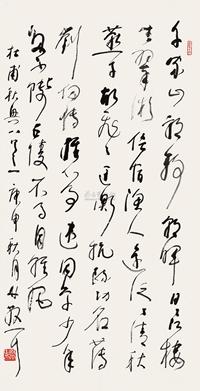 千家山郭靜朝暉日日江樓
坐翠微信宿漁人還泛泛清秋
燕子故飛飛匡衡抗疏功名薄
劉向傳經心事違同學少年
多不賤五陵衣馬自輕肥
杜甫秋興八首之一庚申秋月林散耳